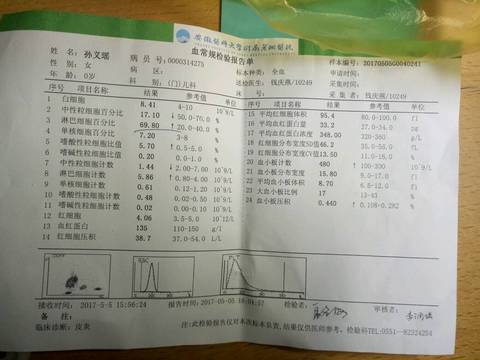 血常规检验报告单
姓 名: 孙义瑶 病 员 号: 0000314275 样本编号: 20170505G0040241
性 别: 女 病 区: 标本种类: 全血 申请时间:
年 龄: 0岁 科 别: (门)儿科 送检医生: 钱庆燕/10249 采集时间:
NO 结果 参考值 单位 采集者: 钱庆燕/10249
1 白细胞 8.41 4-10 10^9/L 15 平均红细胞体积 95.4 80.0-100.0 fl
2 中性粒细胞百分比 17.10 ↓ 50.0-70.0 % 16 平均血红蛋白量 33.2 27.0-34.0
3 淋巴细胞百分比 69.80 ↑ 20.0-40.0 % 17 平均血红蛋白浓度 348.00
4 单核细胞百分比 7.20 3-8 % 18 红细胞分布宽度SD值 46.2 35.0-56.0
5 嗜酸性粒细胞比值 5.70 ↑ 0.5-5.0 % 19 红细胞分布宽度CV值 13.50 11.0-16.0 %
6 嗜碱性粒细胞比值 0.20 0.0-1.0 % 20 血小板数 480 ↑ 100-300 10^9/L
7 中性粒细胞计数 1.44 ↓ 2.00-7.00 10^9/L 21 血小板分布宽度 15.80 9.0-17.0
8 淋巴细胞计数 5.86 ↑ 0.80-4.00 10^9/L 22 平均血小板体积 8.70 6.5-12.0
9 单核细胞计数 0.61 0.12-1.20 10^9/L 23 大血小板比例 17 13-43 %
10 嗜酸性粒细胞计数 0.48 0.02-0.50 10^9/L 24 血小板压积 0.440 ↑ 0.108-0.282 %
11 嗜碱性粒细胞计数 0.02 0.00-0.10 10^9/L
12 红细胞 4.06 3.5-5.0 10^12/L
13 血红蛋白 135 110-150 g/l
14 红细胞压积 38.7 37.0-54.0 L/L
RBC
接收时间: 2017-5-5 15:56:24 报告时间: 检验者: 审核者:
备 注: 注:此检验报告仅对本次标本负责,结果仅供医师参考。检验科TEL:0551-82324254
临床诊断: 皮炎